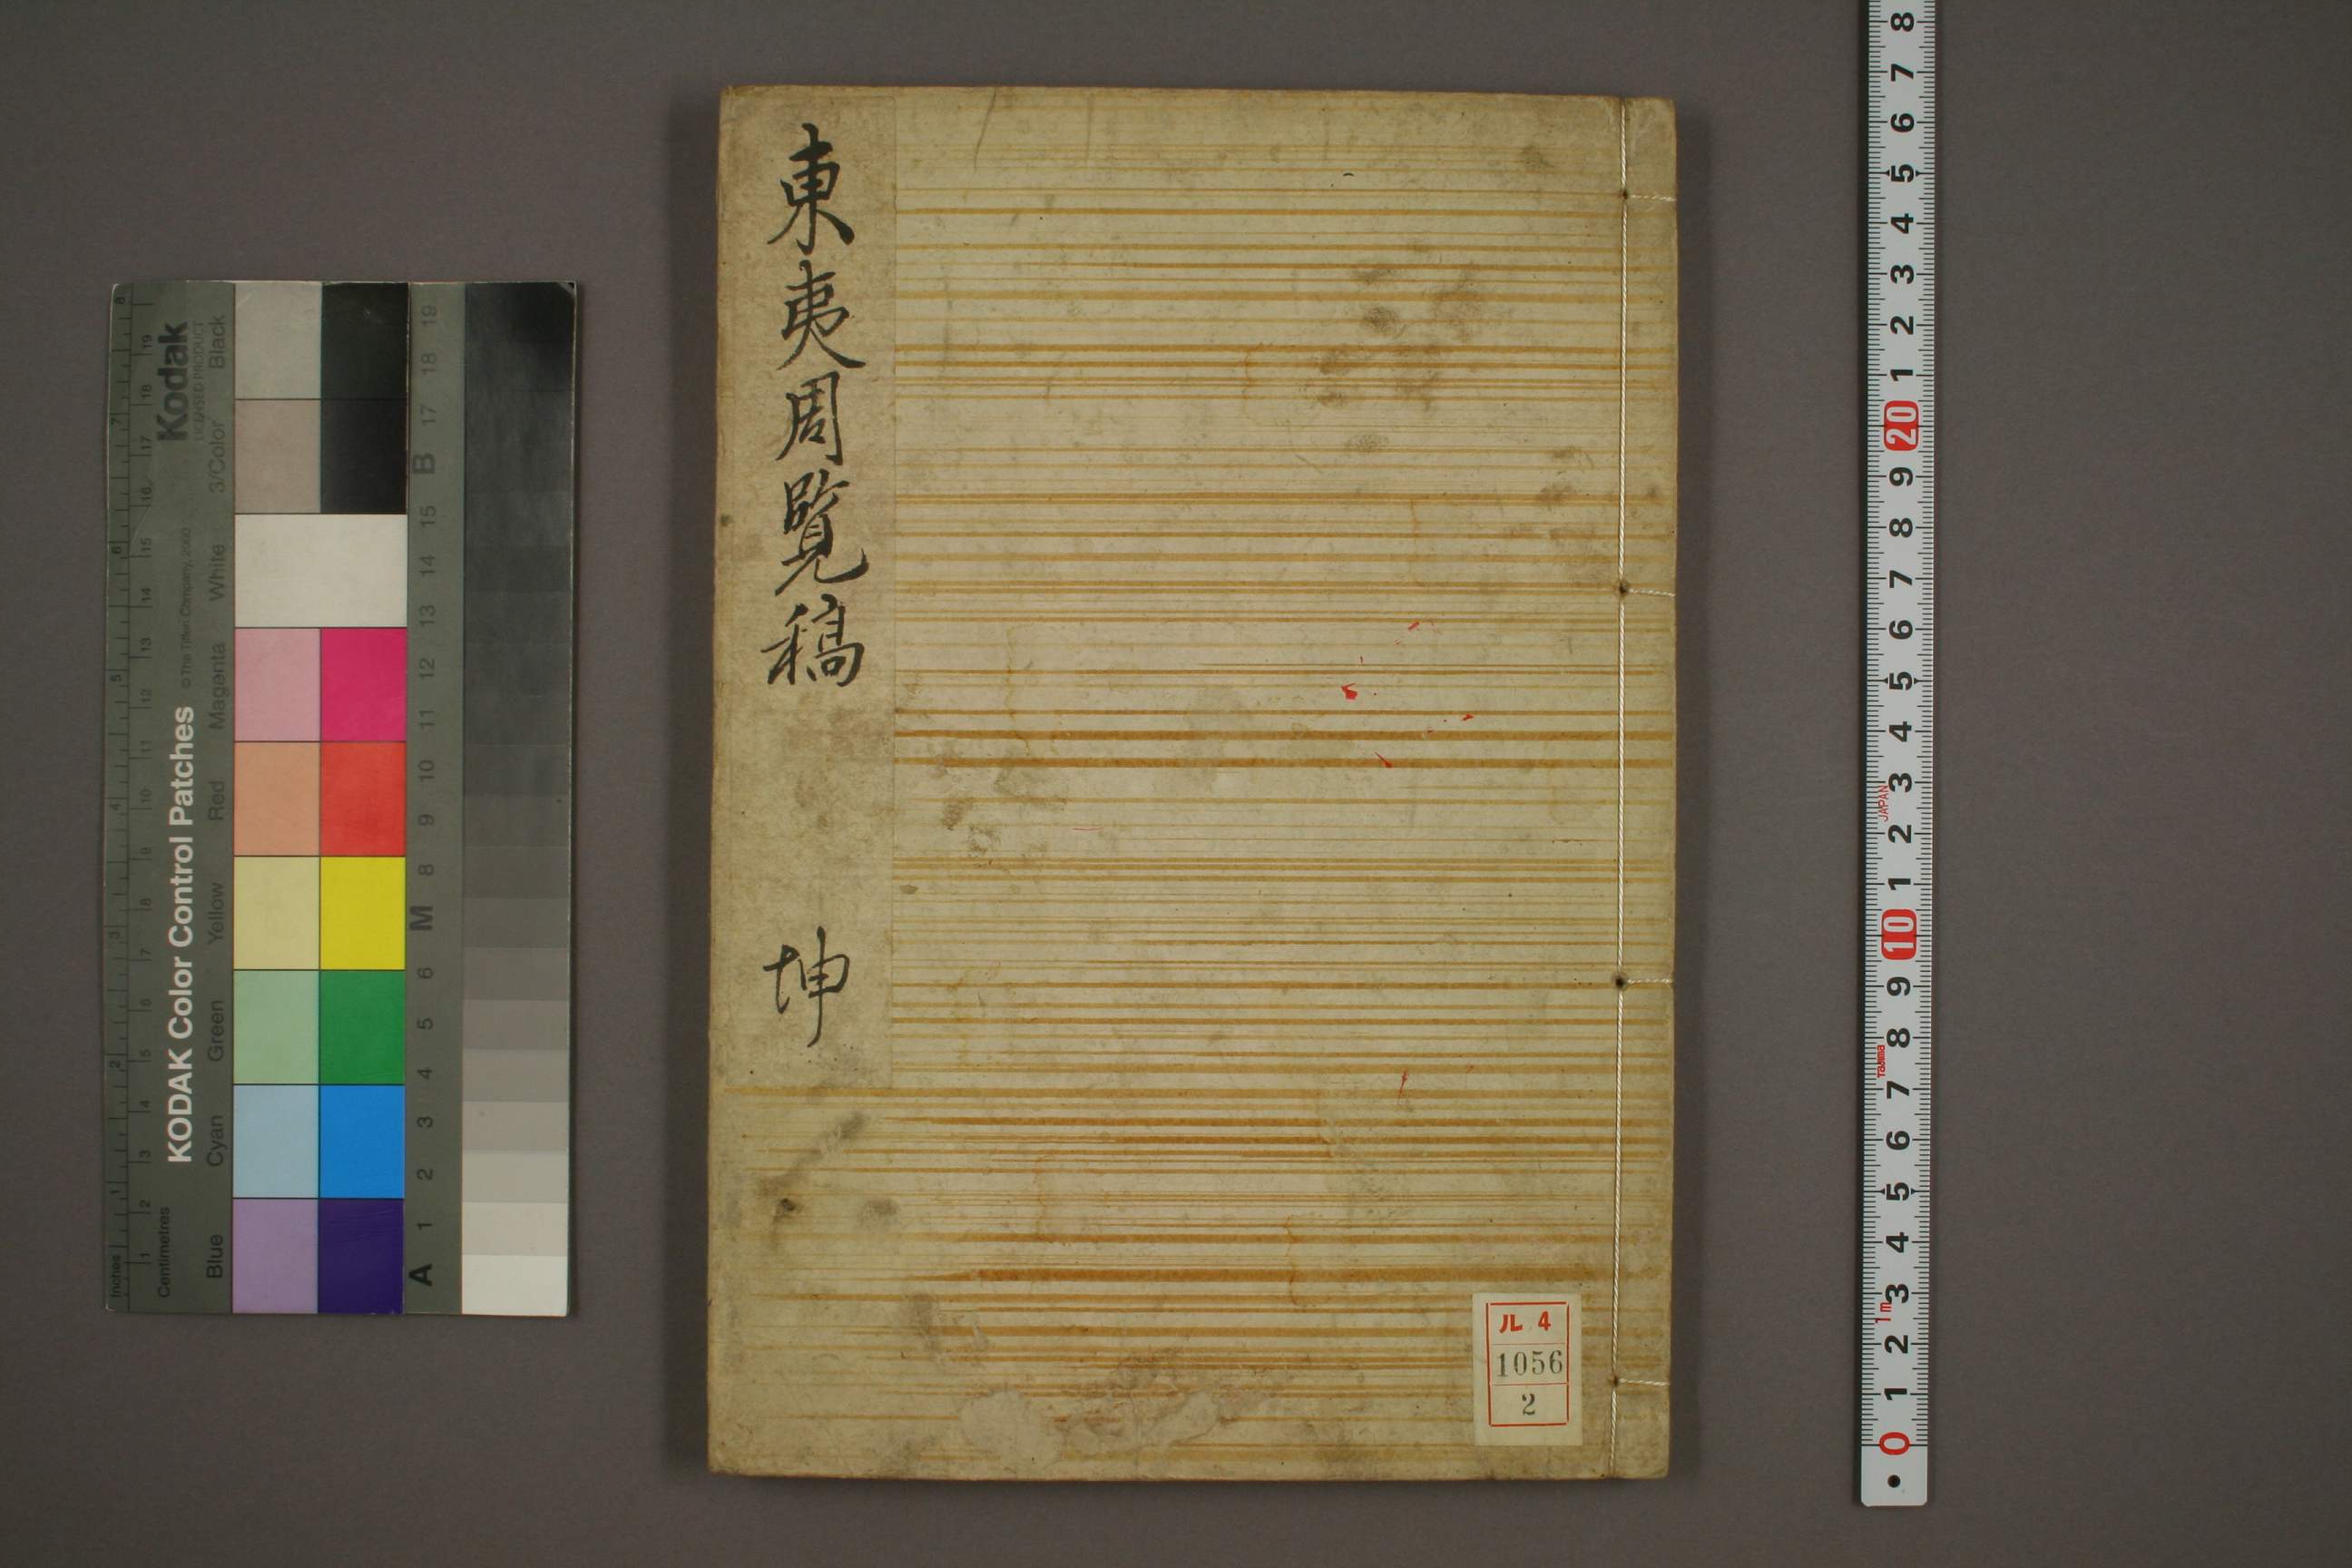 東夷周覧稿 坤
ル 4
1056
2
Kodak
LICENSED PRODUCT
KODAK Color Control Patches
© The Tiffen Company, 2000
Blue Cyan Green Yellow Red Magenta White 3/Color Black
Inches 1 2 3 4 5 6 7 8
Centimetres 1 2 3 4 5 6 7 8 9 10 11 12 13 14 15 16 17 18 19
A 1 2 3 4 5 6 M 8 9 10 11 12 13 14 15 B 17 18 19
8
7
6
5
4
3
2
1
20
9
8
7
6
5
4
3
JAPAN
2
1
10
9
8
TAJIMA
7
6
5
4
3
1m
2
1
0